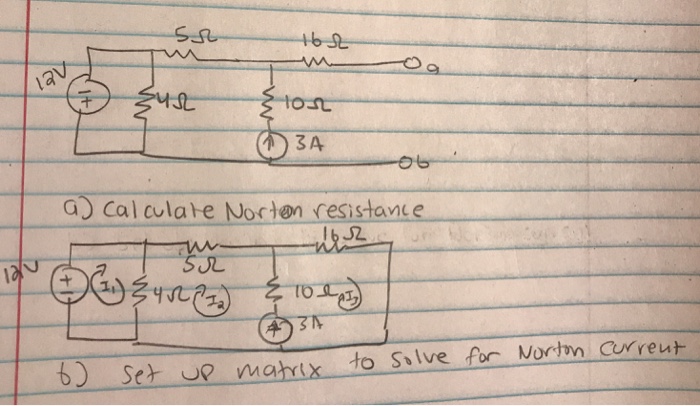 5Ω 16Ω
12V a
4Ω 10Ω
3A
b
a) Calculate Norton resistance
16Ω
12V 5Ω
I1 4Ω I2 10Ω I3
3A
b) Set up matrix to solve for Norton Current